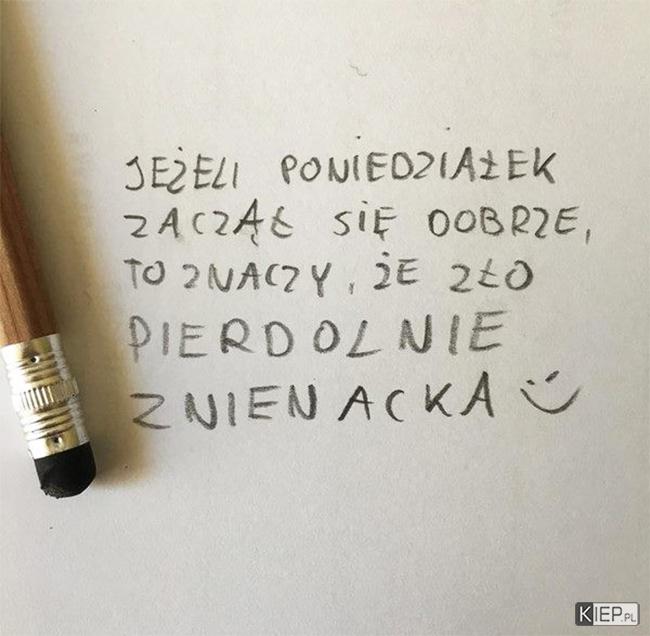 JEŻELI PONIEDZIAŁEK
ZACZĄŁ SIĘ DOBRZE,
TO ZNACZY, ŻE ZŁO
PIERDOLNIE
ZNIENACKA :)
KIEP.PL